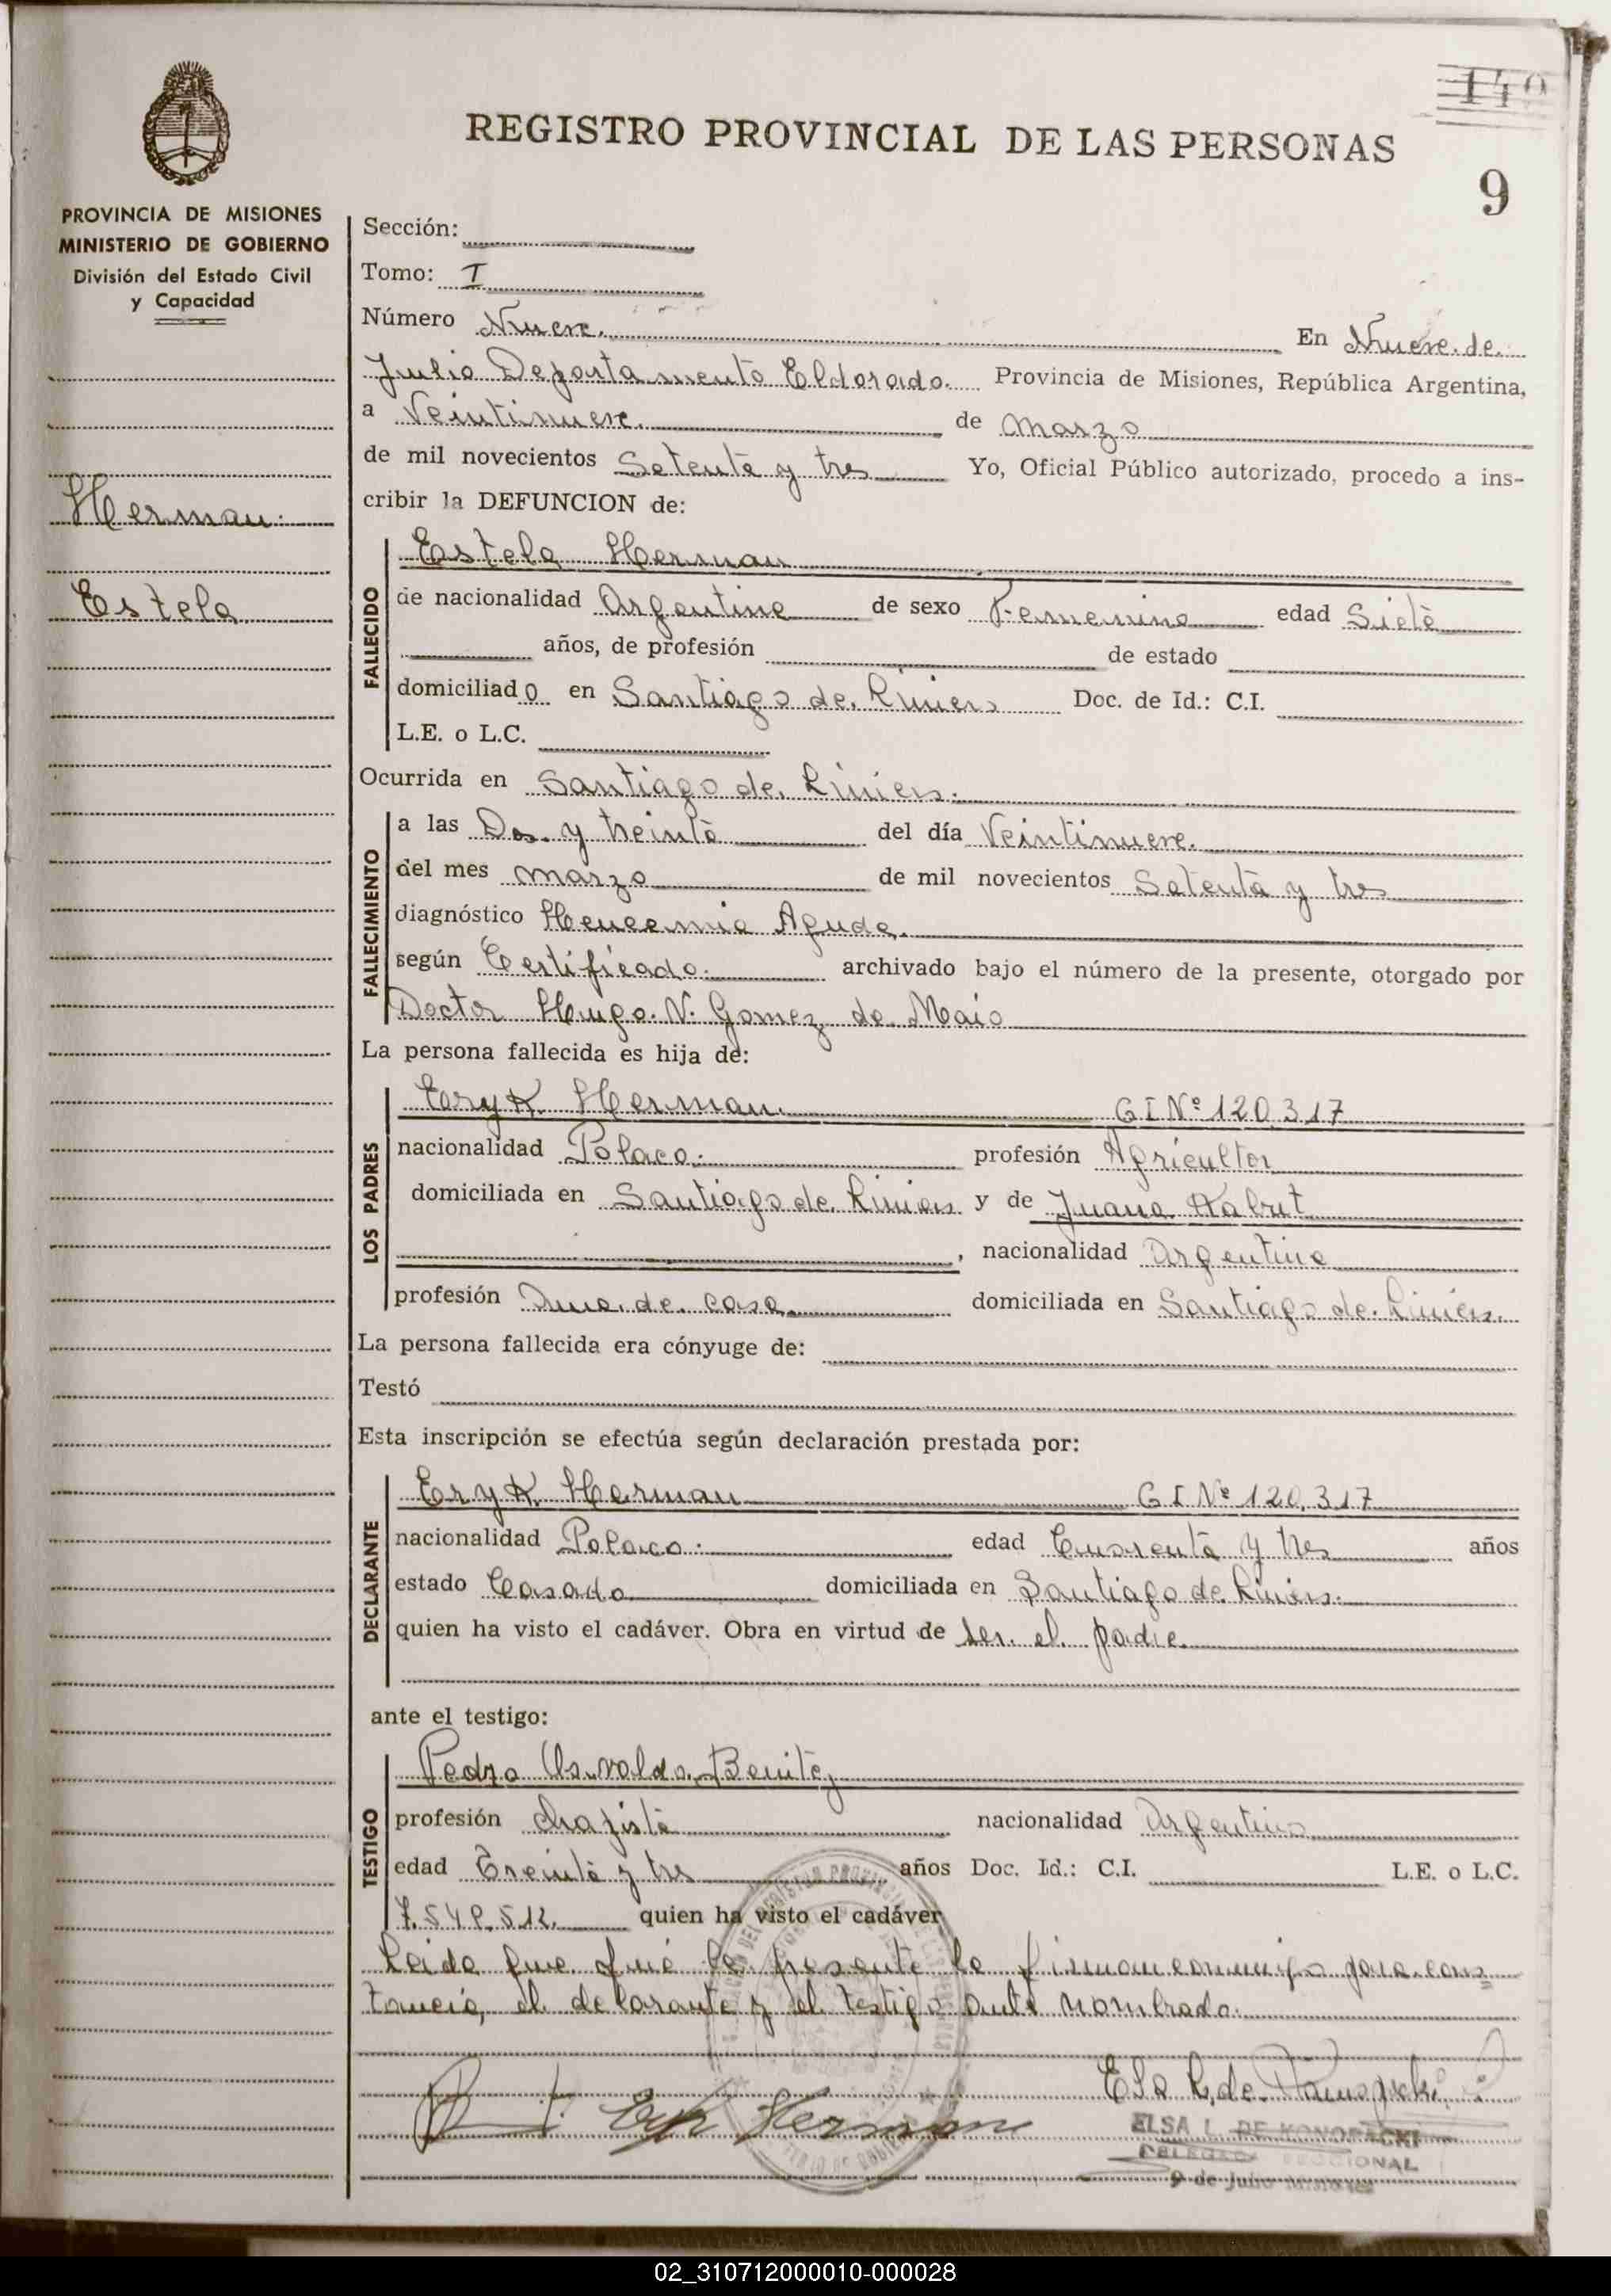 140
REGISTRO PROVINCIAL DE LAS PERSONAS
9
PROVINCIA DE MISIONES
MINISTERIO DE GOBIERNO
División del Estado Civil
y Capacidad
Herman.
Estela
Sección:
Tomo: I
Número Nueve. En Nueve de
Julio Departamento Eldorado. Provincia de Misiones, República Argentina,
a Veintinueve. de marzo
de mil novecientos Setenta y tres Yo, Oficial Público autorizado, procedo a ins-
cribir la DEFUNCION de:
FALLECIDO
Estela Herman
de nacionalidad Argentina de sexo Femenino edad Siete
años, de profesión de estado
domiciliado en Santiago de Liniers Doc. de Id.: C.I.
L.E. o L.C.
Ocurrida en Santiago de Liniers.
FALLECIMIENTO
a las Dos y treinta del día Veintinueve.
del mes marzo de mil novecientos Setenta y tres
diagnóstico Aguda.
según Certificado. archivado bajo el número de la presente, otorgado por
Doctor Hugo N. Gomez de Maio
La persona fallecida es hija de:
LOS PADRES
Eryk Herman. C I Nº 120.317
nacionalidad Polaco. profesión Agricultor
domiciliada en Santiago de Liniers y de Juana
, nacionalidad Argentina
profesión Ama de casa. domiciliada en Santiago de Liniers.
La persona fallecida era cónyuge de:
Testó
Esta inscripción se efectúa según declaración prestada por:
DECLARANTE
Eryk Herman C I Nº 120.317
nacionalidad Polaco. edad Cuarenta y tres años
estado Casado domiciliada en Santiago de Liniers.
quien ha visto el cadáver. Obra en virtud de ser el padre.
ante el testigo:
TESTIGO
Pedro Osvaldo Benitez
profesión nacionalidad Argentino
edad Treinta y tres años Doc. Id.: C.I. L.E. o L.C.
quien ha visto el cadáver
Leida que fué la presente la firman conmigo para cons=
tancia, el declarante y el testigo ante nombrado.
Eryk Herman
Elsa L. de
ELSA L. DE KONOPACKI
SECCIONAL
9 de Julio Misiones
02_310712000010-000028